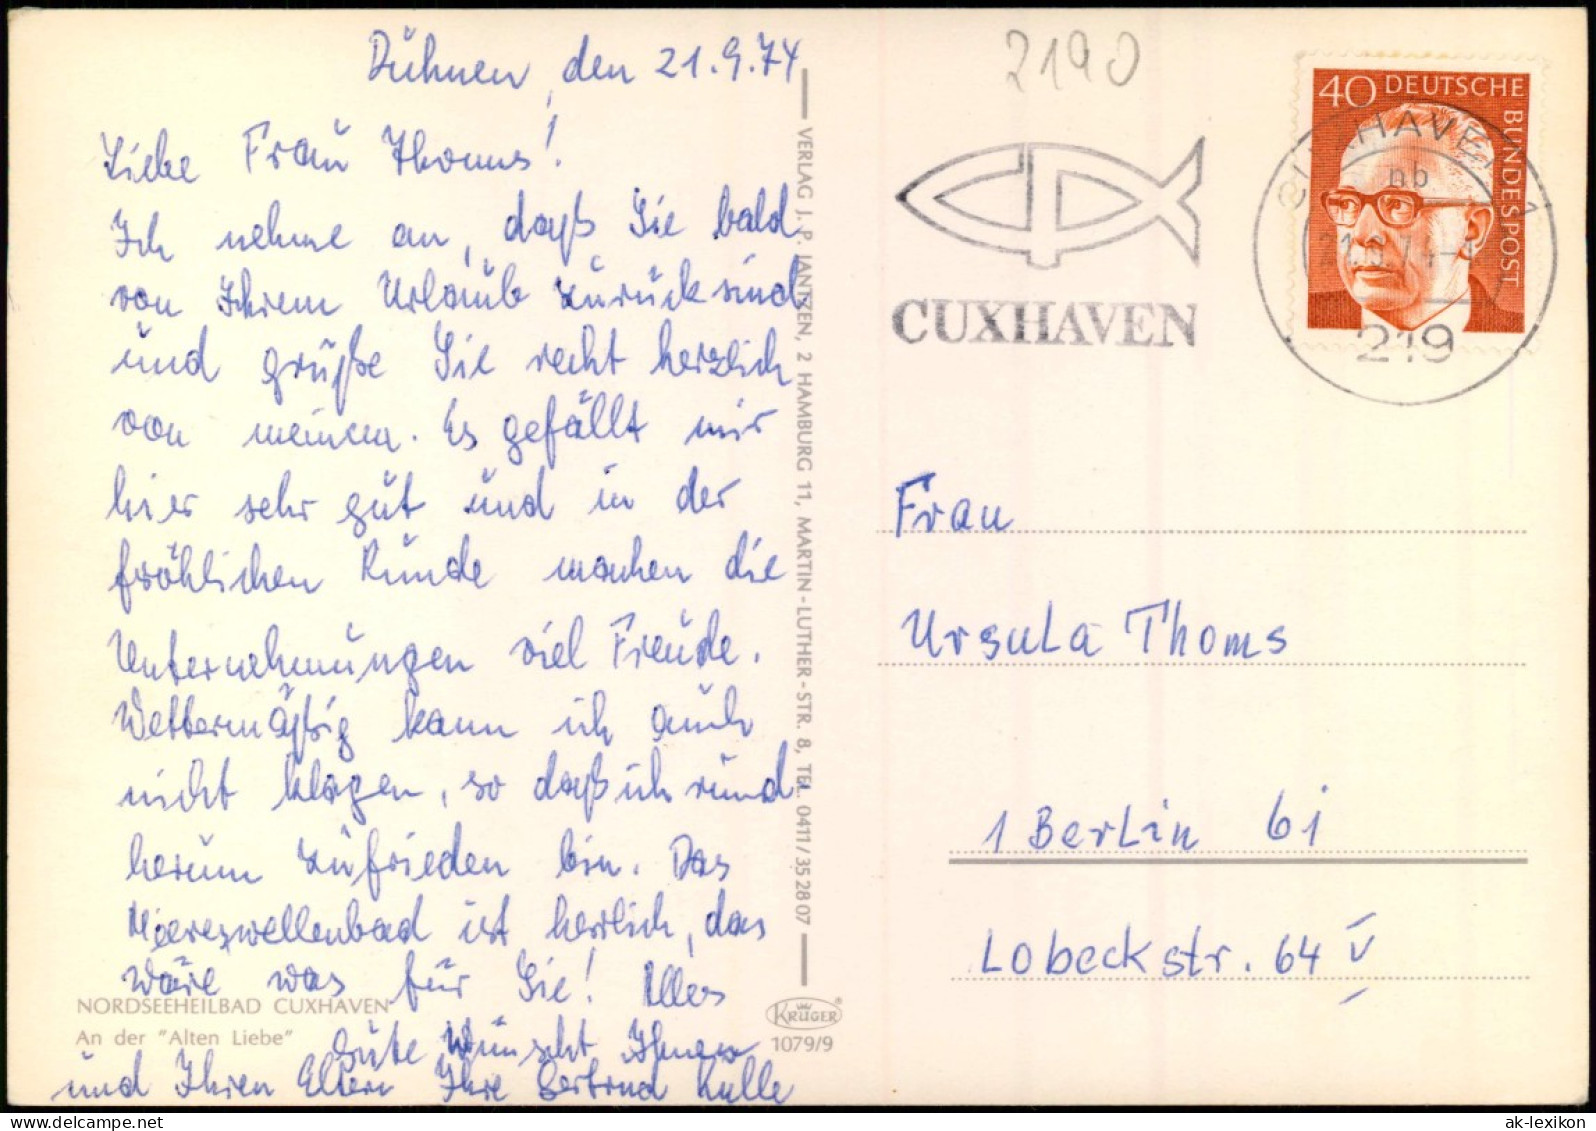 Dühnen, den 21.9.74
Liebe Frau Thoms!
Ich nehme an, daß Sie bald
von Ihrem Urlaub zurück sind
und grüße Sie recht herzlich
von meinem. Es gefällt mir
hier sehr gut und in der
fröhlichen Runde machen die
Unternehmungen viel Freude.
Wettermäßig kann ich auch
nicht klagen, so daß ich rund
herum zufrieden bin. Das
Meereswellenbad ist herrlich, das
wäre was für Sie! Alles
Gute wünscht Ihnen
und Ihren Eltern Ihre Gertrud Kulle
NORDSEEHEILBAD CUXHAVEN
An der "Alten Liebe"
VERLAG J. P. JANTZEN, 2 HAMBURG 11, MARTIN-LUTHER-STR. 8, TEL. 0411/35 28 07
KRÜGER
1079/9
2190
CUXHAVEN
40 DEUTSCHE
BUNDESPOST
CUXHAVEN 1
nb
219
Frau
Ursula Thoms
1 Berlin 61
Lobeckstr. 64 V
ak-lexikon.com